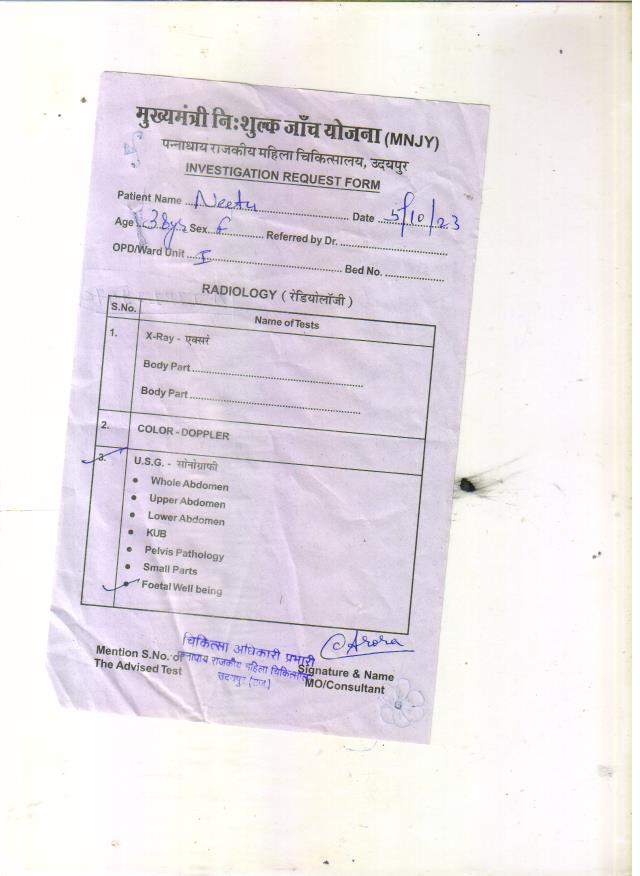 मुख्यमंत्री निःशुल्क जाँच योजना (MNJY)
पन्नाधाय राजकीय महिला चिकित्सालय, उदयपुर
INVESTIGATION REQUEST FORM
Patient Name Neetu Date 5/10/23
Age 38yrs Sex F Referred by Dr.
OPD/Ward Unit I Bed No.
RADIOLOGY ( रेडियोलॉजी )
S.No. Name of Tests
1. X-Ray - एक्सरे
Body Part
Body Part
2. COLOR - DOPPLER
3. U.S.G. - सोनोग्राफी
• Whole Abdomen
• Upper Abdomen
• Lower Abdomen
• KUB
• Pelvis Pathology
• Small Parts
• Foetal Well being
Arora
चिकित्सा अधिकारी प्रभारी
पन्नाधाय राजकीय महिला चिकित्सालय
उदयपुर (राज.)
Mention S.No. of
The Advised Test
Signature & Name
MO/Consultant